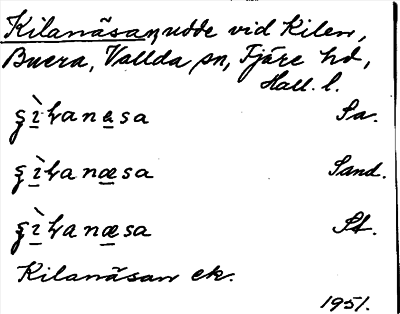 Kilanäsan, udde vid Kilen,
Buera, Vallda sn, Fjäre hd,
Hall. l.
ʂìɦanäsa Sa.
ʂìɦanæsa Sand.
ʂìɦanæsa St.
Kilanäsan ek.
1951.